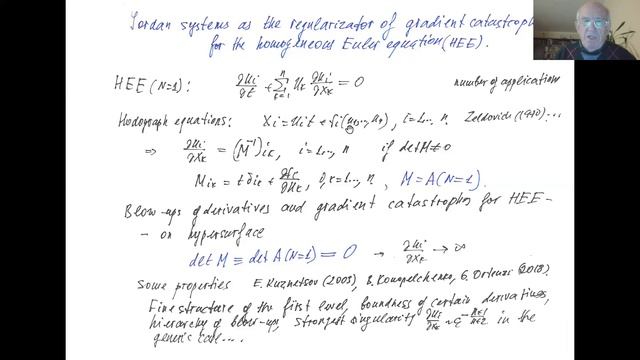 Jordan systems as the regularizator of gradient catastroph
for the homogeneous Euler equation (HEE).
HEE (N=1): ∂u_i/∂t + Σ_{k=1}^{n} u_k ∂u_i/∂x_k = 0 number of application
Hodograph equations: x_i = u_i t + f_i(u_1,..,u_n), i=1,.., n. Zeldovich (1970)...
⇒ ∂u_i/∂x_k = (M^{-1})_{ik}, i=1,..., n if det M ≠ 0
M_{ik} = t δ_{ik} + ∂f_i/∂u_k, i,k=1,..., n, M = A(N=1).
Blow-ups of derivatives and gradient catastrophes for HEE -
- on hypersurface
det M ≡ det A(N=1) = 0 → ∂u_i/∂x_k → ∞
Some properties E. Kuznetsov (2003), B. Konopelchenko, G. Ortenzi (2018).
Fine structure of the first level, boundness of certain derivatives,
hierarchy of blow-ups, strongest singularity ∂u_i/∂x_k ~ ε^{-(n+1)/(n+2)} in the
generic case....